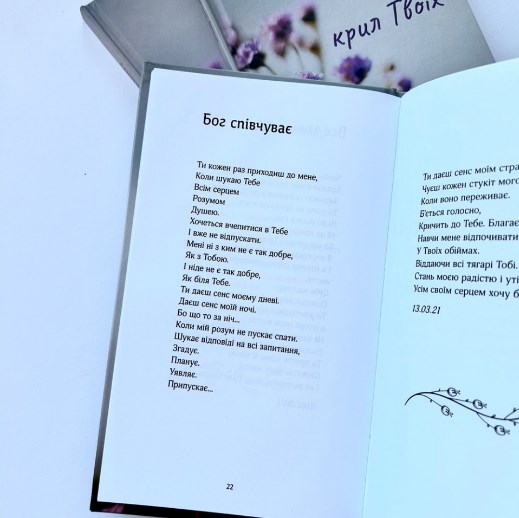 крил Твоїх
Бог співчуває
Ти кожен раз приходиш до мене,
Коли шукаю Тебе
Всім серцем
Розумом
Душею.
Хочеться вчепитися в Тебе
І вже не відпускати.
Мені ні з ким не є так добре,
Як з Тобою.
І ніде не є так добре,
Як біля Тебе.
Ти даєш сенс моєму дневі.
Даєш сенс моїй ночі.
Бо що то за ніч...
Коли мій розум не пускає спати.
Шукає відповіді на всі запитання,
Згадує.
Планує.
Уявляє.
Припускає...
22
Ти даєш сенс моїм стра
Чуєш кожен стукіт мого
Коли воно переживає.
Б'ється голосно,
Кричить до Тебе. Благає
Навчи мене відпочивати
У Твоїх обіймах.
Віддаючи всі тягарі Тобі.
Стань моєю радістю і уті
Усім своїм серцем хочу б
13.03.21